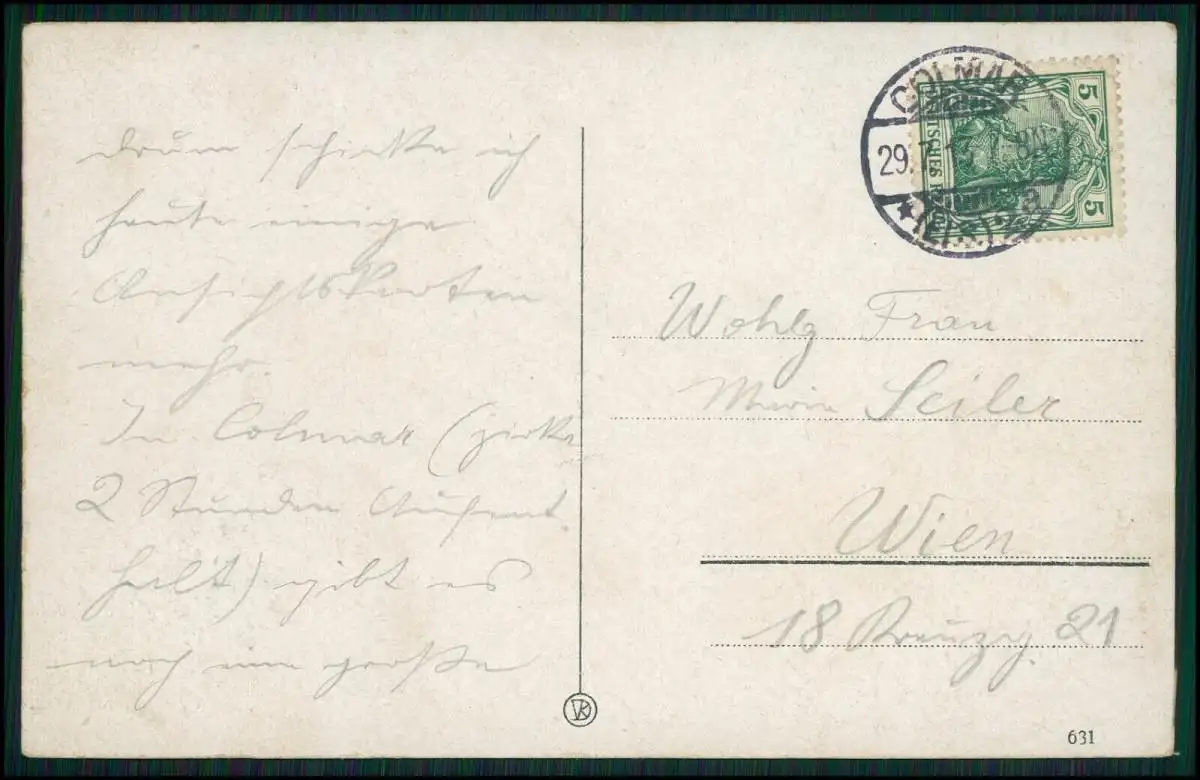 drum schicke ich
heute einige
Ansichtskarten
mehr.
In Colmar (zirka
2 Stunden Aufent-
halt) gibt es
noch eine große
COLMAR
29. 7.
*(ELS.)* a
DEUTSCHES REICH
5
5
Wohlg Frau
Marie Seiler
Wien
18 Kreuzg. 21
631